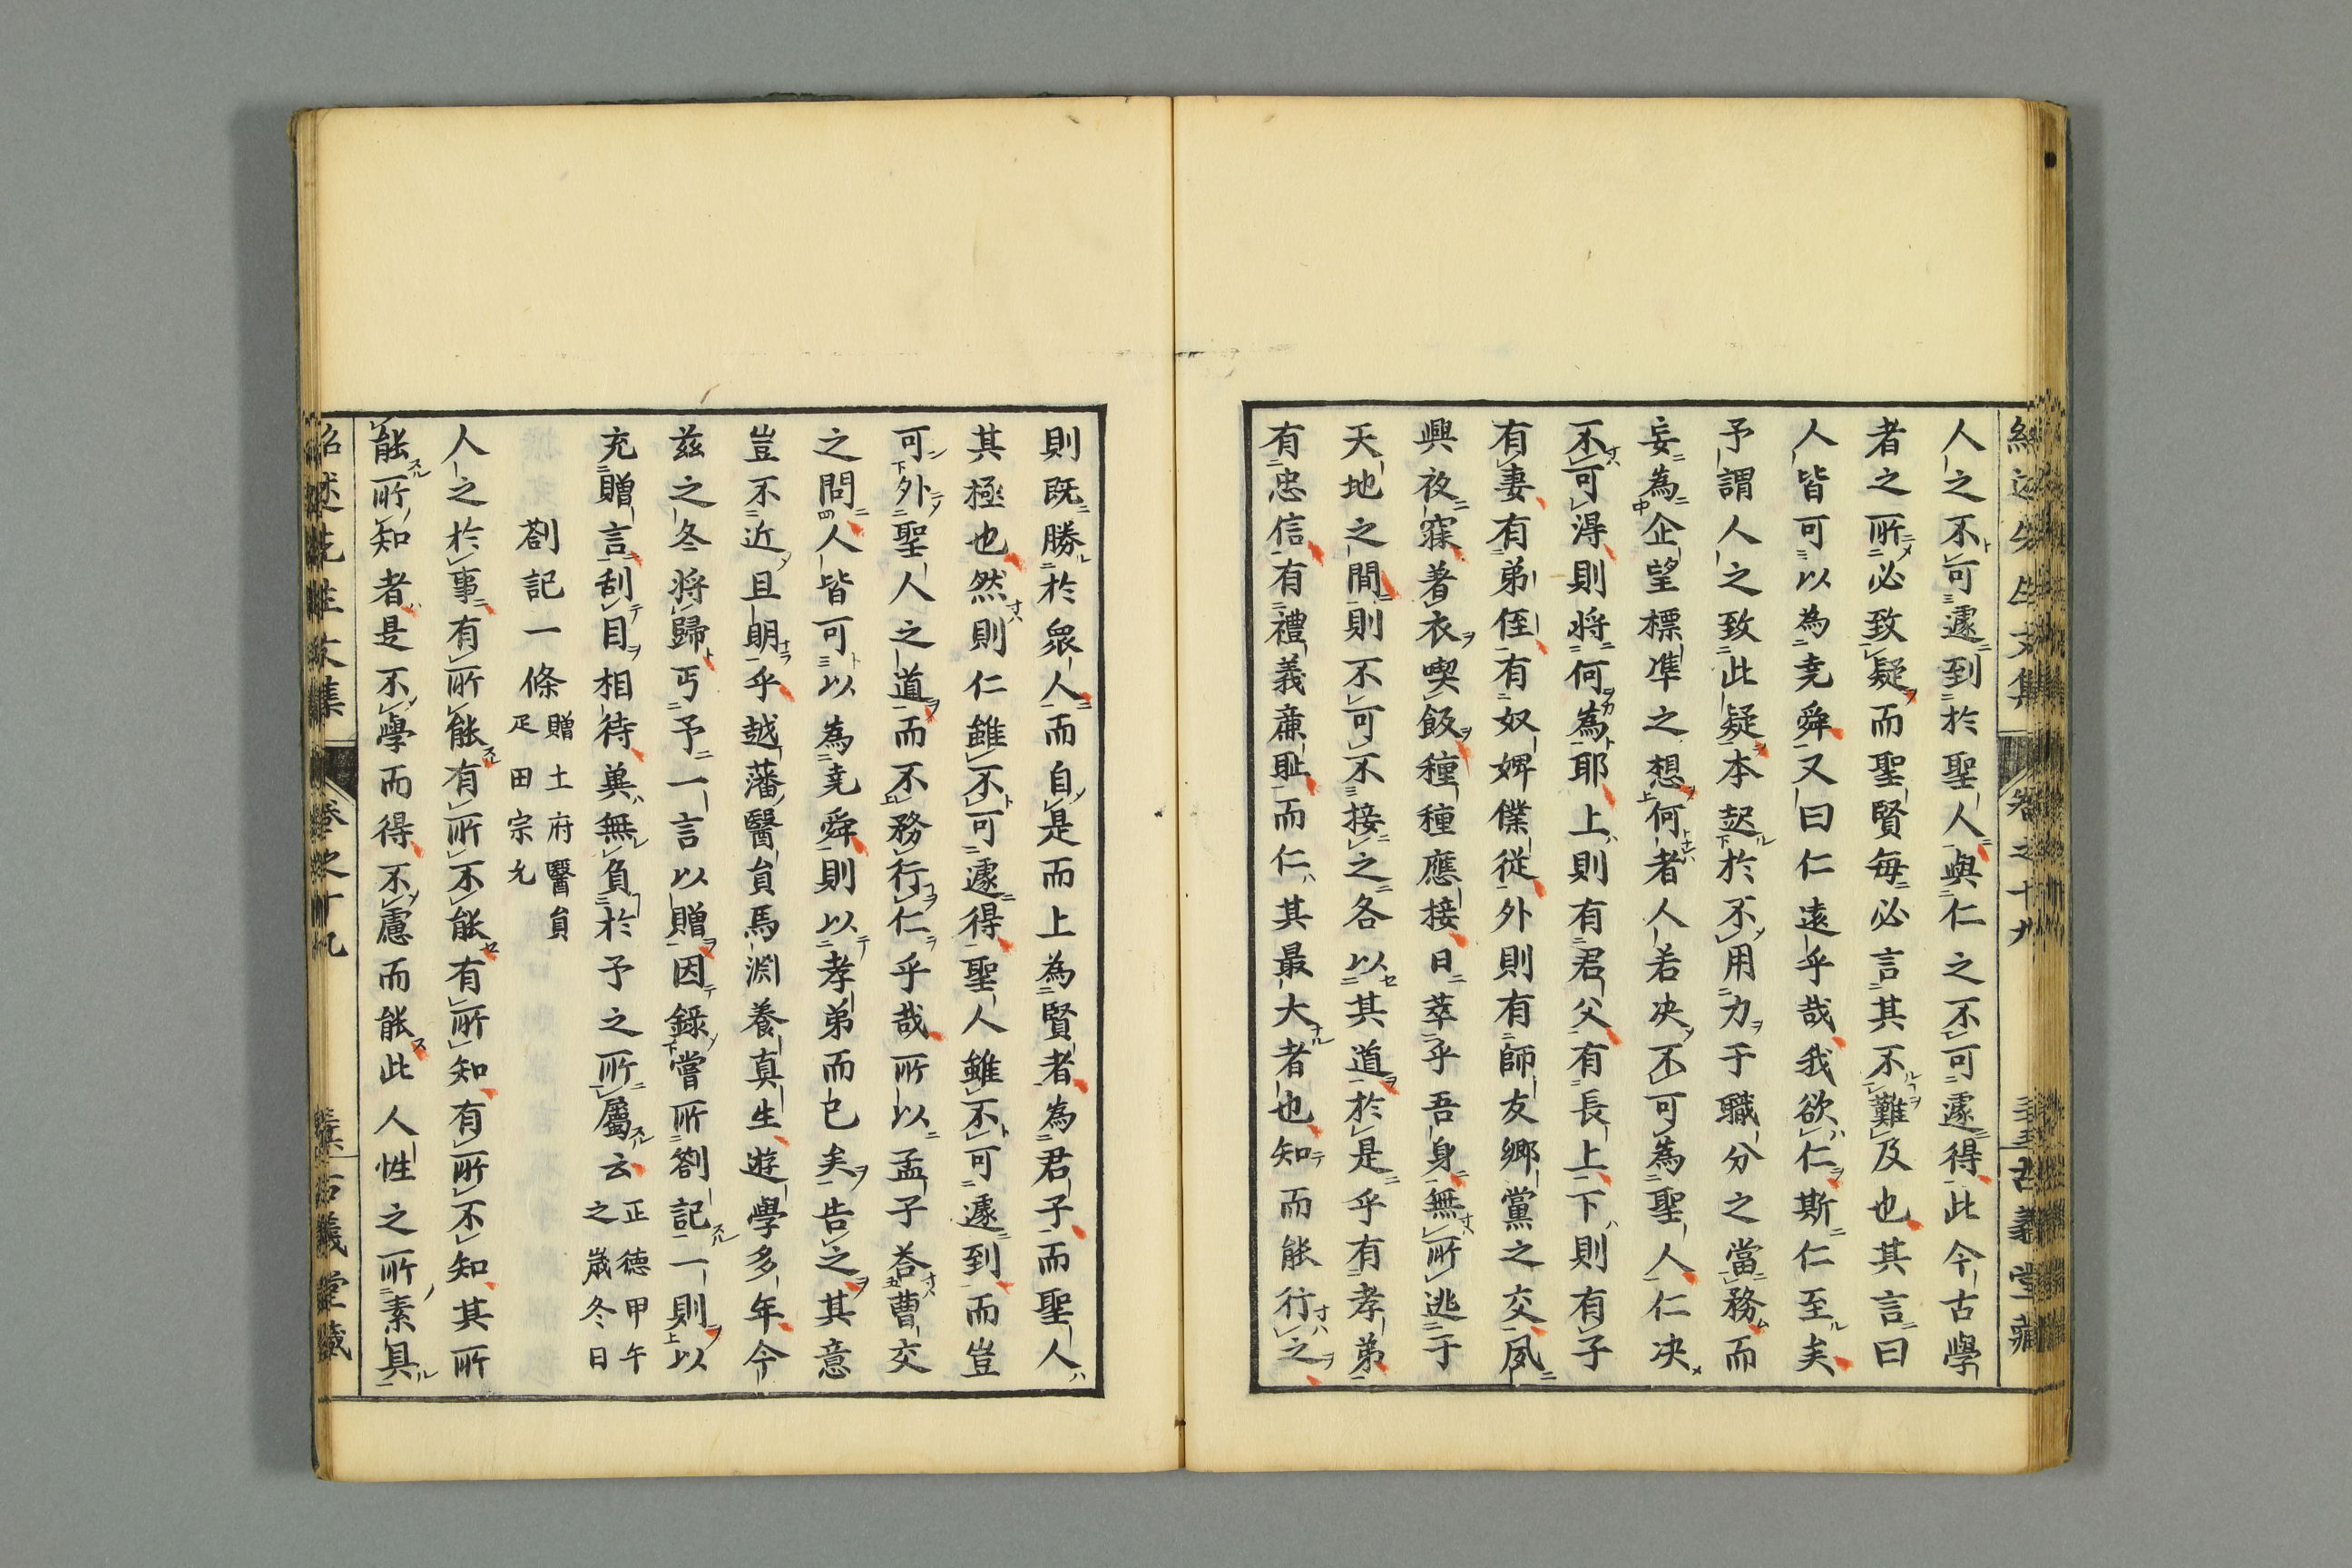 人之不可遽到於聖人與仁之不可遽得此今古學
者之所必致疑而聖賢每必言其不難及也其言曰
人皆可以為堯舜又曰仁遠乎哉我欲仁斯仁至矣
予謂人之致此疑本起於不用力于職分之當務而
妄為企望標準之想何者人若决不可為聖人仁决
不可得則將何為耶上則有君父有長上下則有子
有妻有弟侄有奴婢僕從外則有師友鄉黨之交夙
興夜寐著衣喫飯種種應接日萃乎吾身無所逃于
天地之間則不可不接之各以其道於是乎有孝弟
有忠信有禮義廉耻而仁其最大者也知而能行之
則既勝於眾人而自是而上為賢者為君子而聖人
其極也然則仁雖不可遽得聖人雖不可遽到而豈
可外聖人之道而不務行仁乎哉所以孟子荅曹交
之問人皆可以為堯舜則以孝弟而已矣告之其意
豈不近且明乎越藩醫員馬淵養真生遊學多年今
茲之冬將歸丐予一言以贈因錄嘗所劄記一則以
充贈言刮目相待冀無負於予之所屬云正德甲午
之歲冬日
劄記一條贈土府醫員
疋田宗允
人之於事有所能有所不能有所知有所不知其所
能所知者是不學而得不慮而能此人性之所素具
紹述先生文集 卷之十九 古義堂藏